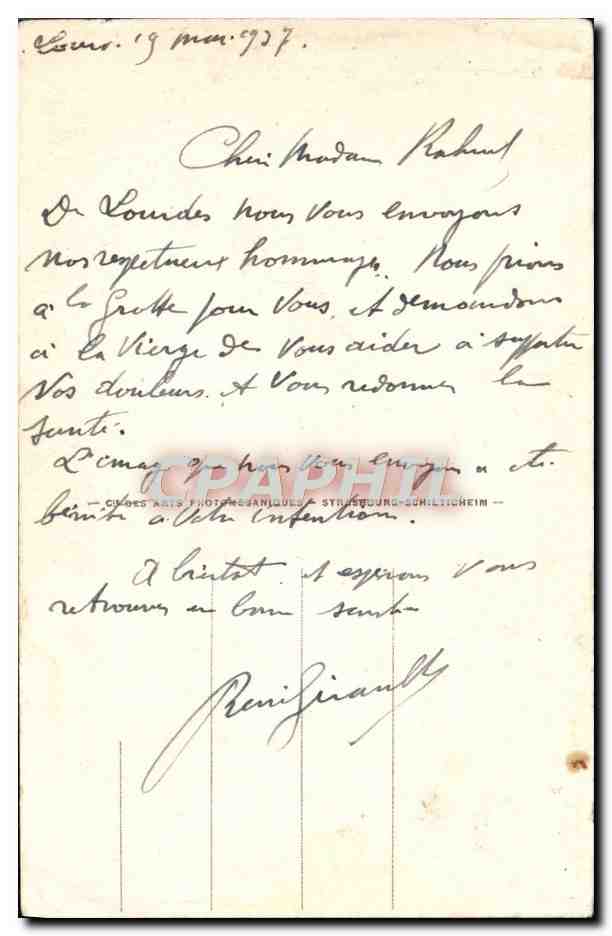 19 mai 1937.
Chère Madame
De Lourdes nous vous envoyons
nos respectueux hommages. Nous prions
à la Grotte pour vous. et demandons
à la Vierge de vous aider à supporter
vos douleurs. et vous redonner la
santé.
L'image que nous vous envoyons a été
CPAPHIL
CIE DES ARTS PHOTOMECANIQUES - STRASBOURG-SCHILTIGHEIM
bénite à votre intention.
A bientôt. et espérons vous
retrouver en bonne santé
Girault